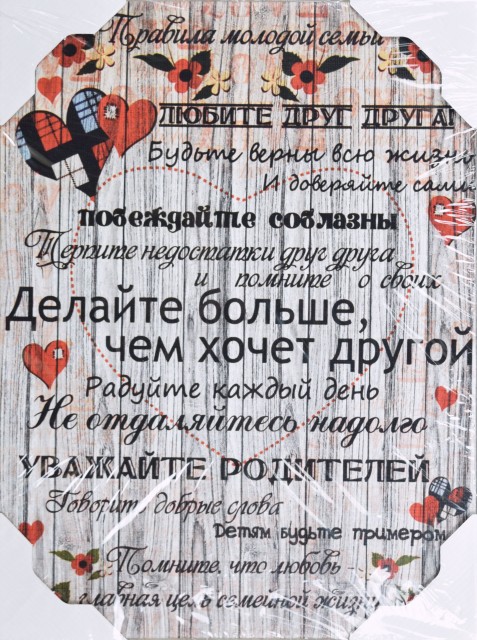 Правила молодой семьи
ЛЮБИТЕ ДРУГ ДРУГА!
Будьте верны всю жизнь
И доверяйте сами
побеждайте соблазны
Терпите недостатки друг друга
и помните о своих
Делайте больше,
чем хочет другой
Радуйте каждый день
Не отдаляйтесь надолго
УВАЖАЙТЕ РОДИТЕЛЕЙ
Говорите добрые слова
Детям будьте примером
Помните, что любовь
главная цель семейной жизни